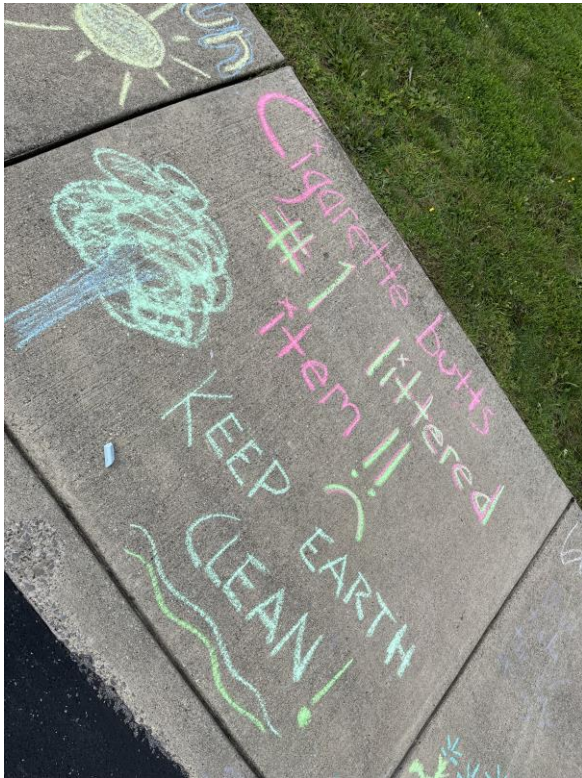 un
Cigarette butts
#1 littered
item!!
KEEP EARTH
CLEAN!